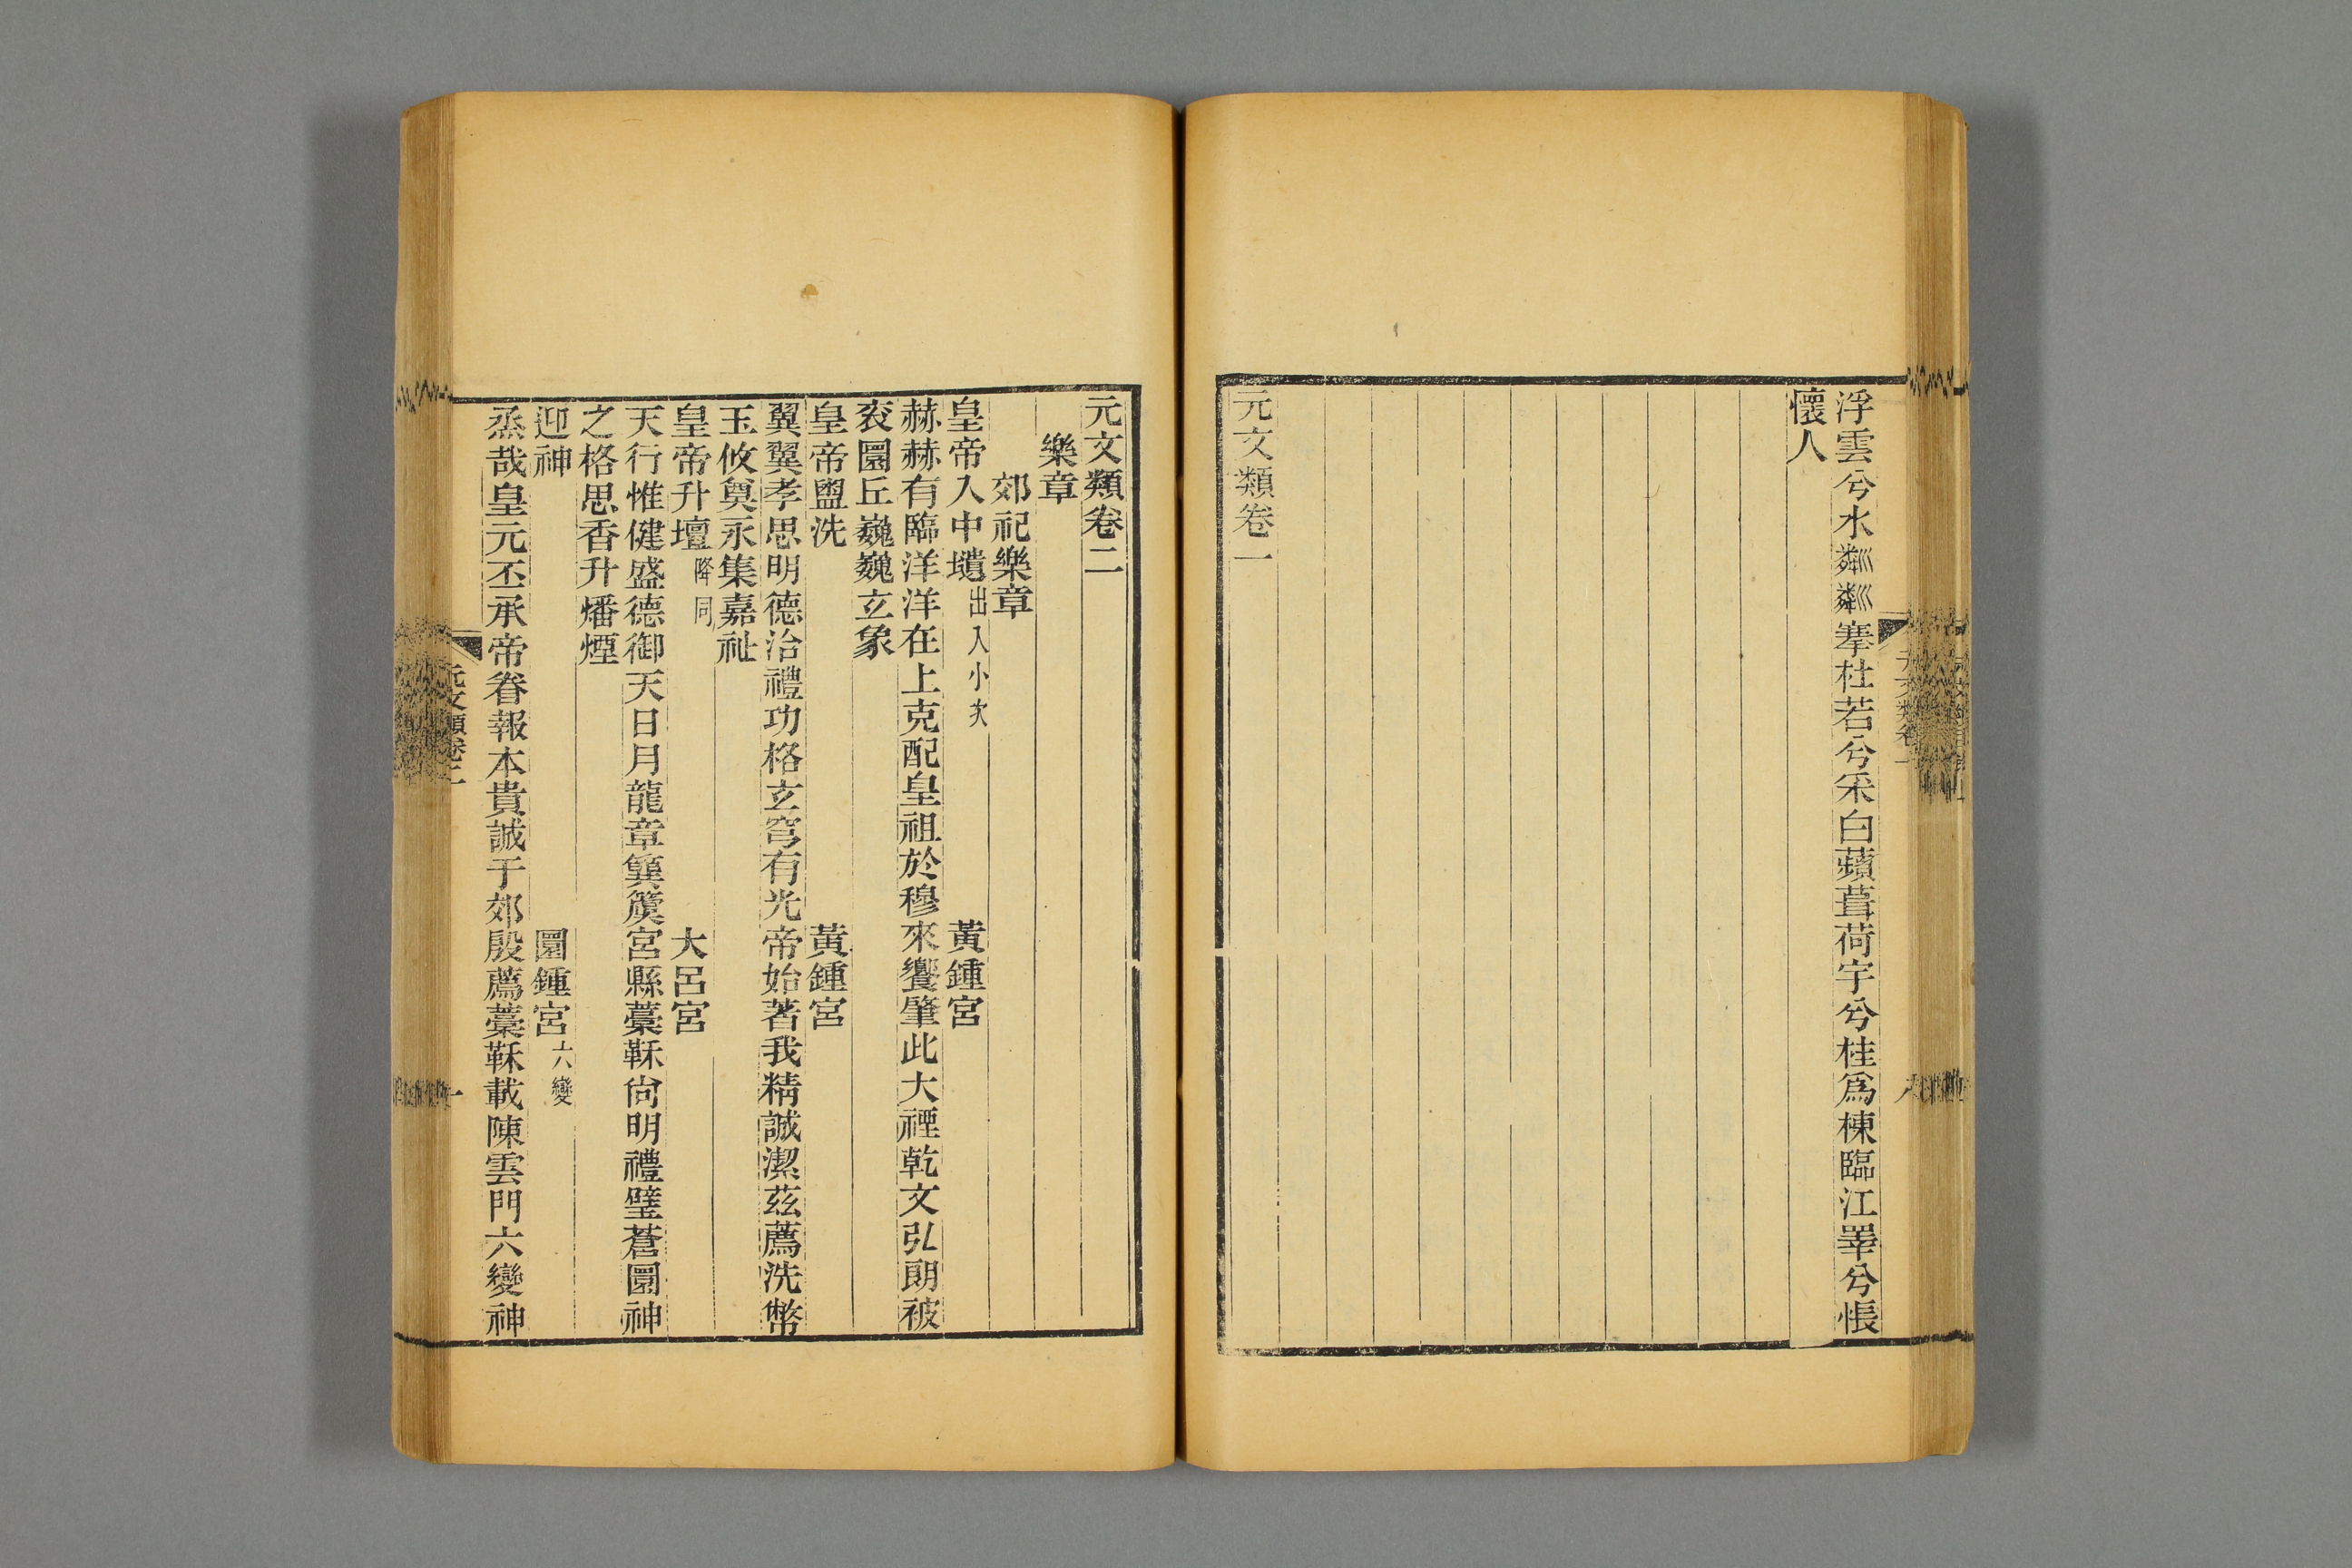 浮雲兮水粼粼搴杜若兮采白蘋葺荷宇兮桂爲棟臨江睪兮悵
懷人
元文類卷一
元文類卷二
樂章
郊祀樂章
皇帝入中壝出入小次 黃鍾宮
赫赫有臨洋洋在上克配皇祖於穆來饗肇此大禋乾文弘朗被
衮圜丘巍巍玄象
皇帝盥洗 黃鍾宮
翼翼孝思明德洽禮功格玄穹有光帝始著我精誠潔茲薦洗幣
玉攸奠永集嘉祉
皇帝升壇降同 大呂宮
天行惟健盛德御天日月龍章簨簴宮縣藁鞂尙明禮璧蒼圜神
之格思香升燔煙
迎神 圜鍾宮六變
烝哉皇元丕承帝眷報本貴誠于郊殷薦藁鞂載陳雲門六變神
元文類卷二
一